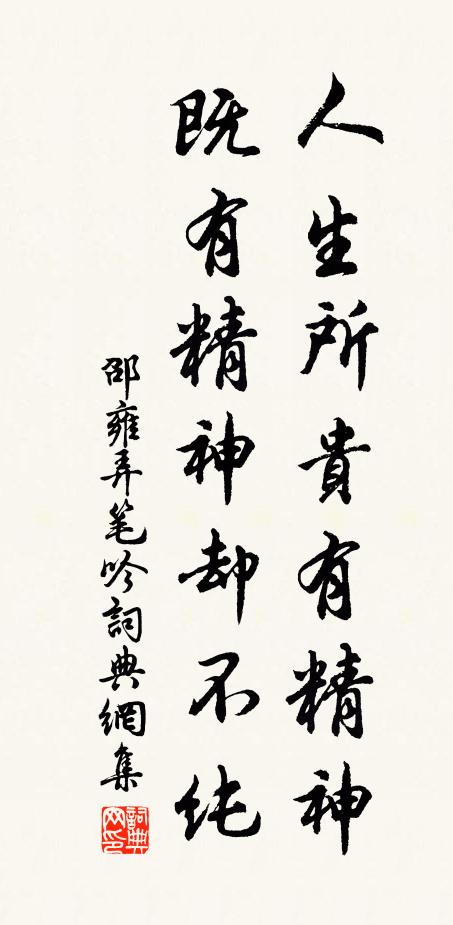 人生所貴有精神
既有精神却不純
邵雍弄笔吟詞典網集
詞典网印